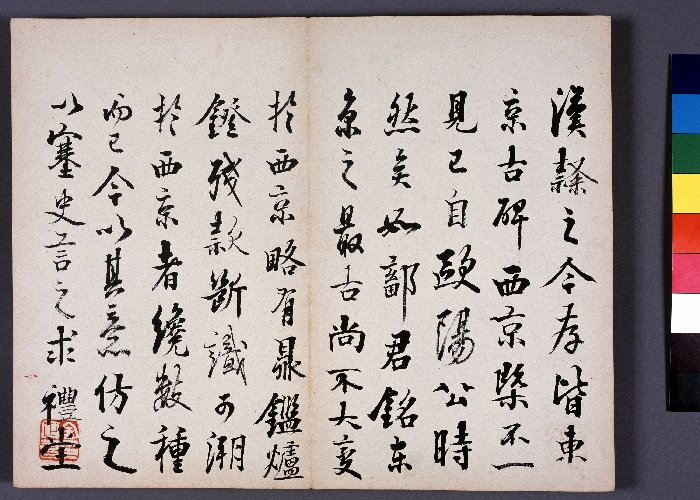 漢隸之今存皆東
京古碑西京槩不一
見已自歐陽公時
然矣如鄐君銘東
京之最古尚不大變
於西京略有鼎鑑爐
鐙殘款斷識可溯
於西京者纔數種
而已今以其意仿之
以塞史言之求 禮堂